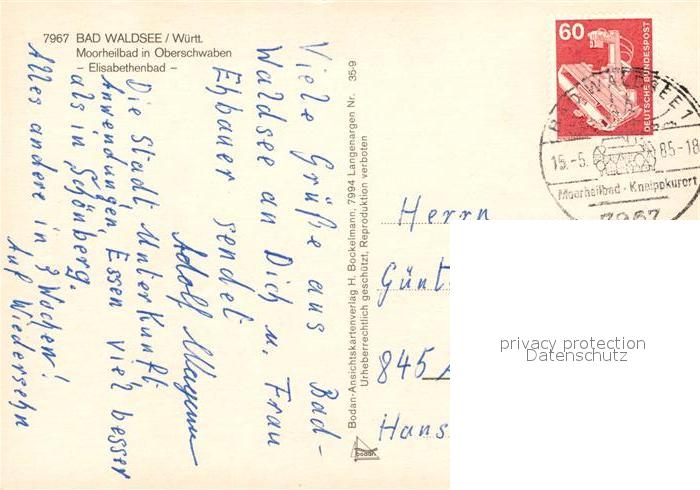 7967 BAD WALDSEE / Württ.
Moorheilbad in Oberschwaben
– Elisabethenbad –
Viele Grüße aus Bad-
Waldsee an Dich u. Frau
Ehbauer sendet
Adolf
Die Stadt Unterkunft
Anwendungen, Essen viel besser
als in Schönberg.
Alles andere in 3 Wochen!
Auf Wiedersehn
Bodan-Ansichtskartenverlag H. Bockelmann, 7994 Langenargen Nr. 35-9
Urheberrechtlich geschützt, Reproduktion verboten
bodan
60
DEUTSCHE BUNDESPOST
BAD WALDSEE 1
15.-5. 85-18
Moorheilbad - Kneippkurort
7967
Herrn
Günt
845
Hans
privacy protection
Datenschutz